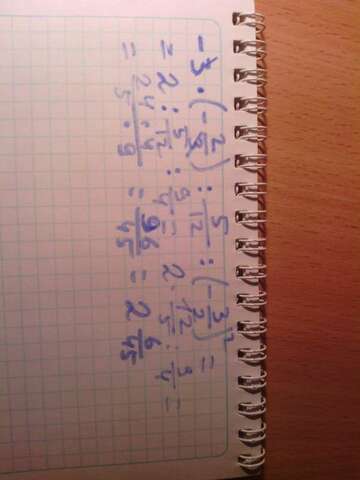 -3 · (-2/3) : 5/12 : (-3/2)² =
= 2 : 5/12 : 9/4 = 2 · 12/5 : 9/4 =
= 24 · 4/5 · 9 = 96/45 = 2 6/45